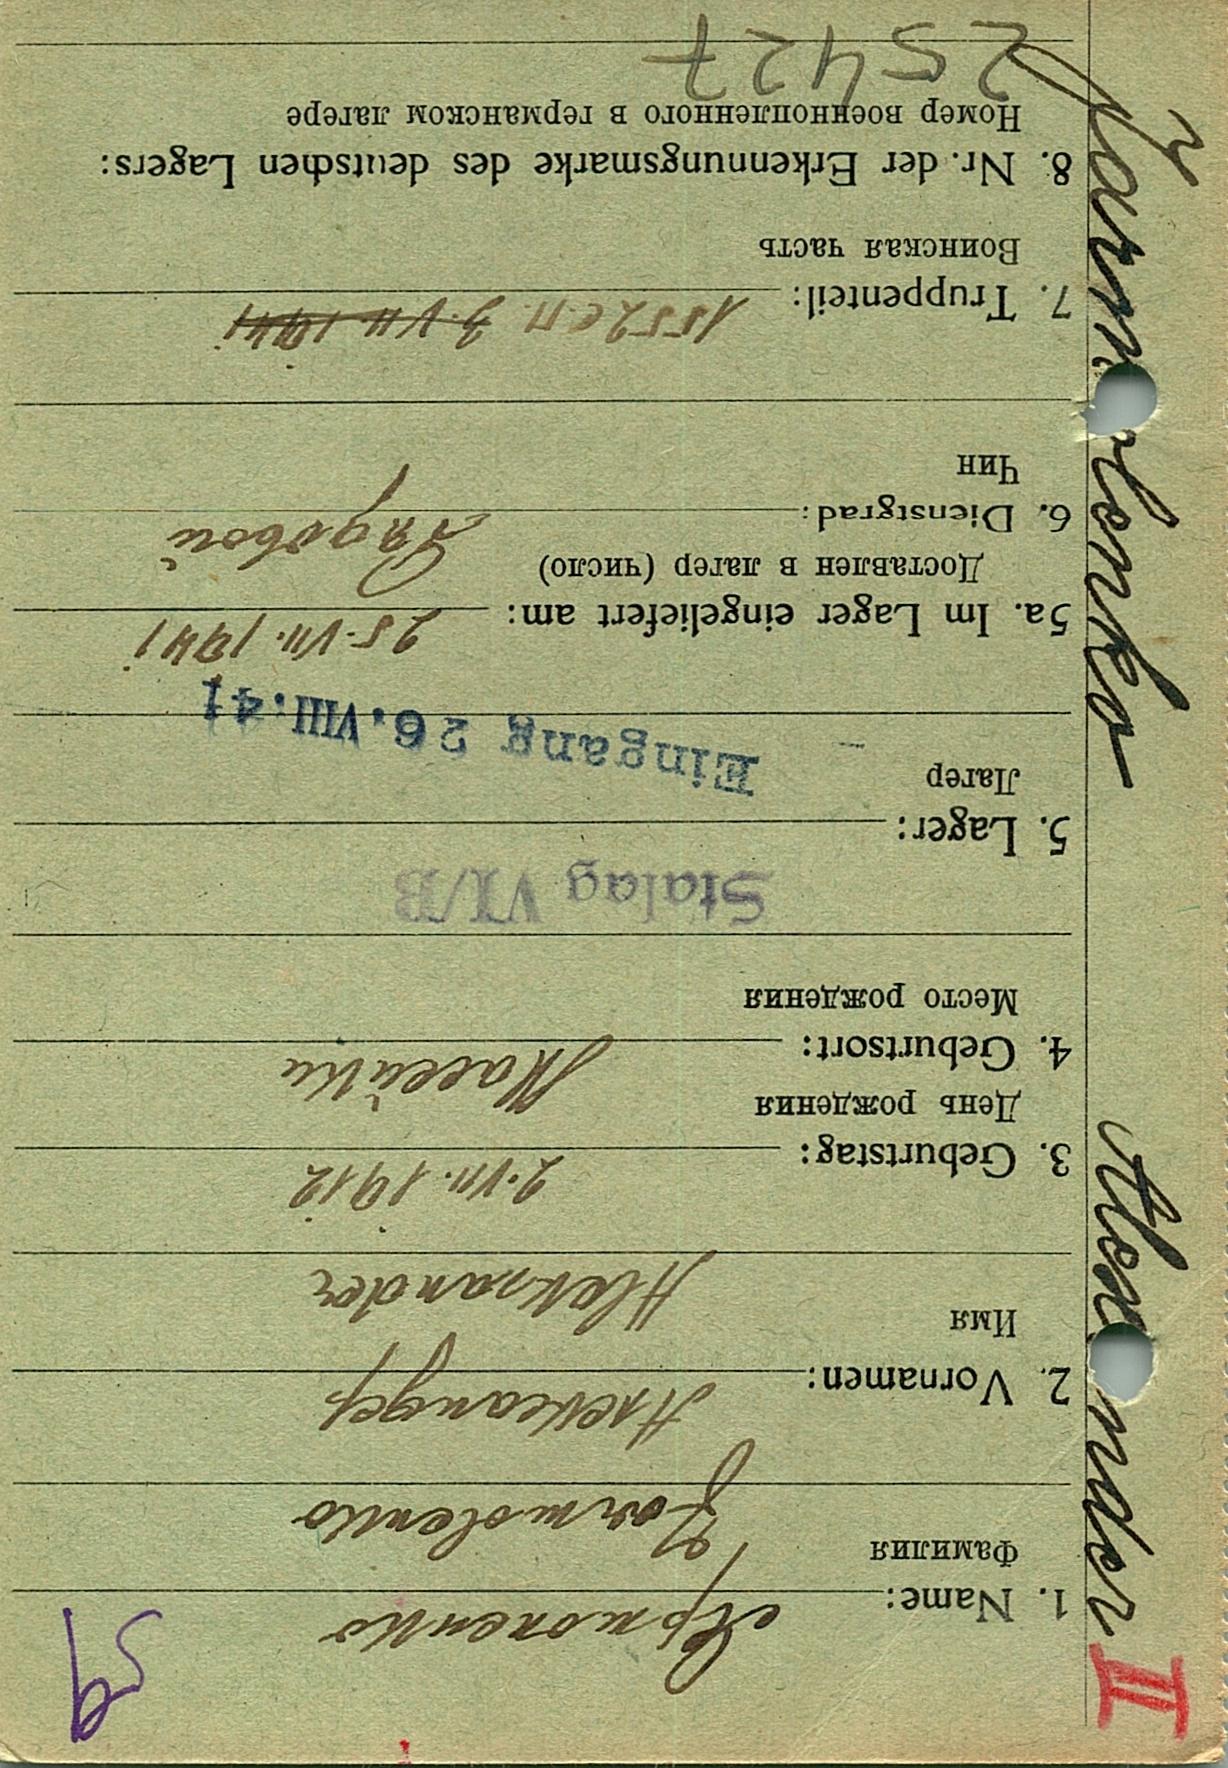 59
Ярмоленко
1. Name:
Фамилия
Jarmolenko
Александер
2. Vornamen:
Имя
Aleksander
2.VII.1912
3. Geburtstag:
День рождения
4. Geburtsort:
Место рождения
Stalag VI/B
5. Lager:
Лагер
Eingang 26.VIII.41
25.VII.1941
5a. Im Lager eingeliefert am:
Доставлен в лагер (число)
Рядовой
6. Dienstgrad:
Чин
1552 с.п. 3.VII.1941
7. Truppenteil:
Воинская часть
8. Nr. der Erkennungsmarke des deutschen Lagers:
Номер военнопленного в германском лагере
25427
Jarmolenko Alexander II